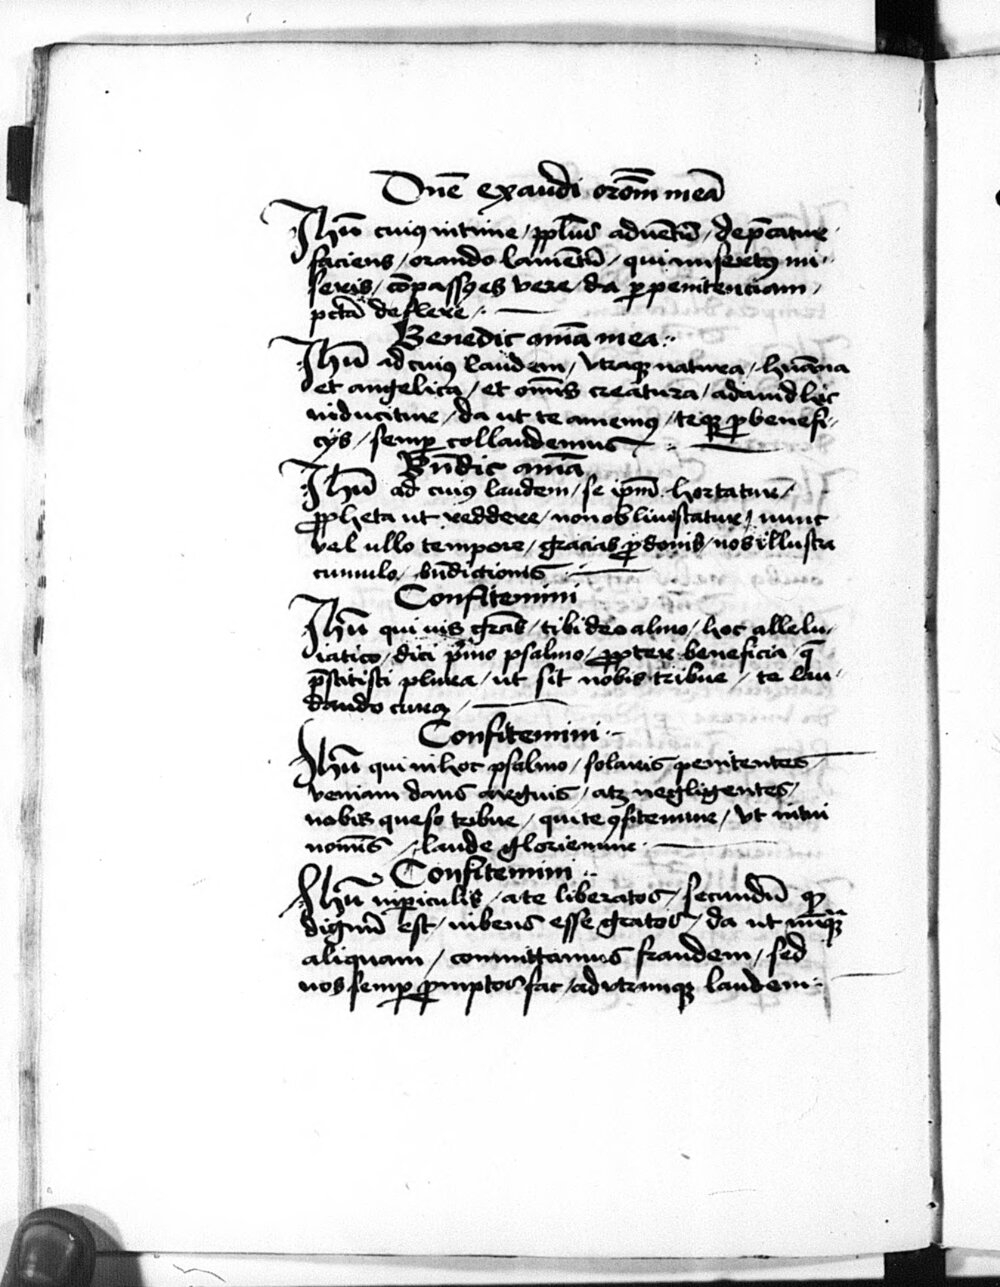 Dn̄e exaudi or̄om̄ meā
Jhū cuiq intime / pplūs aduentū / dep̄catur
faciens / orando lamentū / qui misertq mi-
seris / cōpassyes vere / da p penitenciam /
pctā deflere /.
Benedic aīa mea ⁘
Jhū ad cuiq laudem / vtraqꝫ natura / huāna
et angelica / et om̄is creatura / ad laud hic
inducitur / da ut te amemq / teqꝫ p benefi-
cijs / semp collaudemus
Bn̄dic aīa
Jhū ad cuiq laudem / se ip̄m hortatur /
ꝓpheta ut reddere / non obliuiscatur / nunc
vel ullo tempore / gracias ꝓ donis / nos illustra
cumulo / bn̄dictionis
Confitemini
Jhū qui uis grās / tibi deo almo / hoc allelu-
iatico / dici p̄mo psalmo / ꝓpter beneficia / q̄
p̄stitisti plura / ut sit nobis tribue / te lau-
dando cura /
Confitemini ⁘
Jhū qui in hoc psalmo / solaris penitentes
veniam dans arguis / atqꝫ negligentes /
nobis queso tribue / qui te ꝯfitemur / vt in tui
nom̄is / laude gloriemur
Confitemini ⁘
Jhū in piculis / a te liberatos / secundū qꝫ
dignū est / iubens esse gratos / da ut nūqꝫ
aliquam / committamus fraudem / sed
nos semp ꝓmptos fac / ad vtramqꝫ laudem ⁘